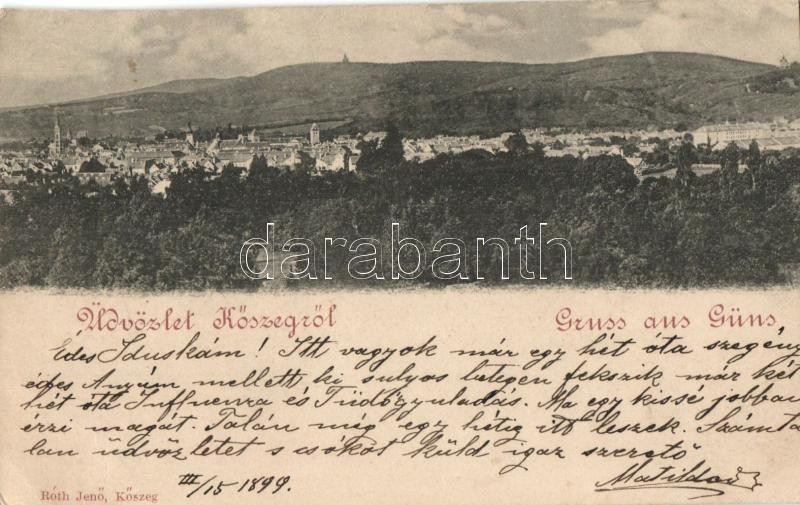 darabanth
Üdvözlet Kőszegről Gruss aus Güns.
Édes Iduskám! Itt vagyok már egy hét óta szegény
édes Anyám mellett, ki sulyos betegen fekszik már két
hét óta Influenza és Tüdőgyuladás. Ma egy kissé jobban
érzi magát. Talán még egy hétig itt leszek. Számta
lan üdvözletet s csókot küld igaz szerető
Matild
III/15 1899.
Róth Jenő, Kőszeg